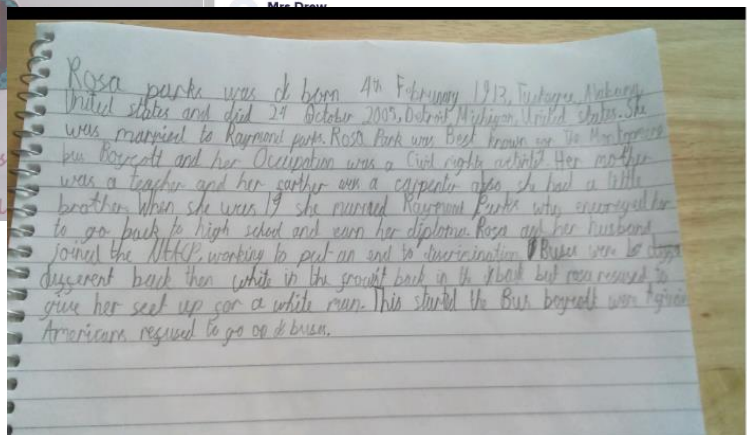 Mrs Drew
Rosa parks was born 4th February 1913, Tuskegee, Alabama,
United states and died 24 October 2005, Detroit, Michigan, United states. She
was married to Raymond parks. Rosa Park was Best known for The Montgomery
bus Boycott and her Occupation was a Civil rights activist. Her mother
was a teacher and her farther was a carpenter also she had a little
brother. When she was 19 she married Raymond Parks who encouraged her
to go back to high school and earn her diploma. Rosa and her husband
joined the NAACP, working to put an end to discrimination Buses were
different back then white in the back in the back but rosa refused to
give her seat up for a white man. This started the Bus boycott were
Americans refused to go on buses.